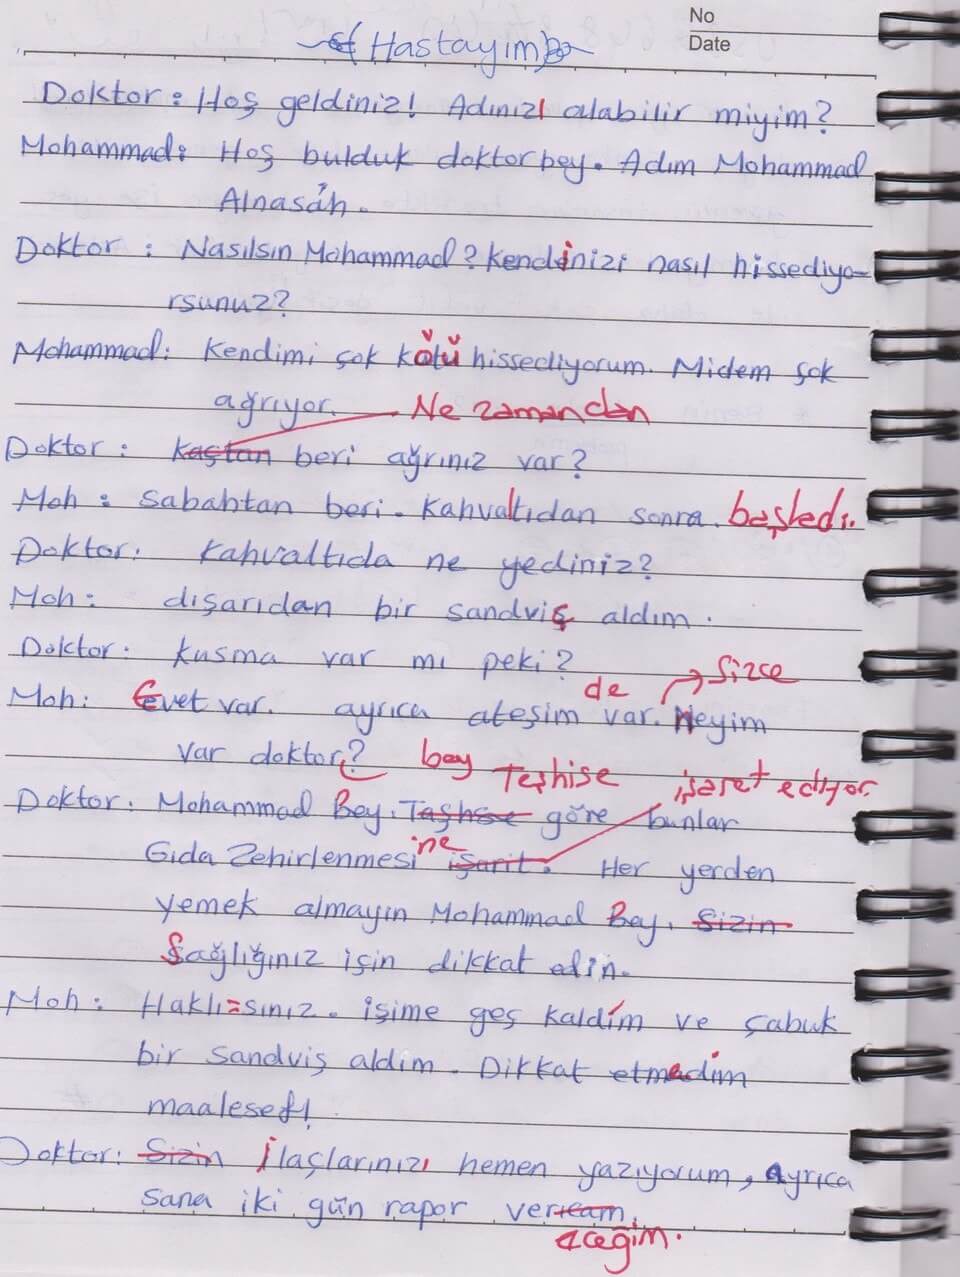 No
Date
Hastayım
Doktor: Hoş geldiniz! Adınızı alabilir miyim?
Mohammad: Hoş bulduk doktor bey. Adım Mohammad
Alnasah.
Doktor: Nasılsın Mohammad? kendinizi nasıl hissediyo-
rsunuz?
Mohammad: Kendimi çok kötü hissediyorum. Midem çok
ağrıyor. Ne zamandan
Doktor: Kaştan beri ağrınız var?
Moh: Sabahtan beri. Kahvaltıdan sonra başladı.
Doktor: Kahvaltıda ne yediniz?
Moh: dışarıdan bir sandviç aldım.
Doktor: Kusma var mı peki?
de Sizce
Moh: Evet var. ayrıca ateşim var. Neyim
var doktor? bey Teşhise işaret ediyor.
Doktor: Mohammad Bey. Taşhse göre bunlar
Gıda Zehirlenmesi ne işarit. Her yerden
yemek almayın Mohammad Bey. Sizin
Sağlığınız için dikkat edin.
Moh: Haklısınız. işime geç kaldım ve çabuk
bir sandviş aldım. Dikkat etmedim
maalesef!
Doktor: Sizin İlaçlarınızı hemen yazıyorum, Ayrıca
sana iki gün rapor veream.
aceğim.